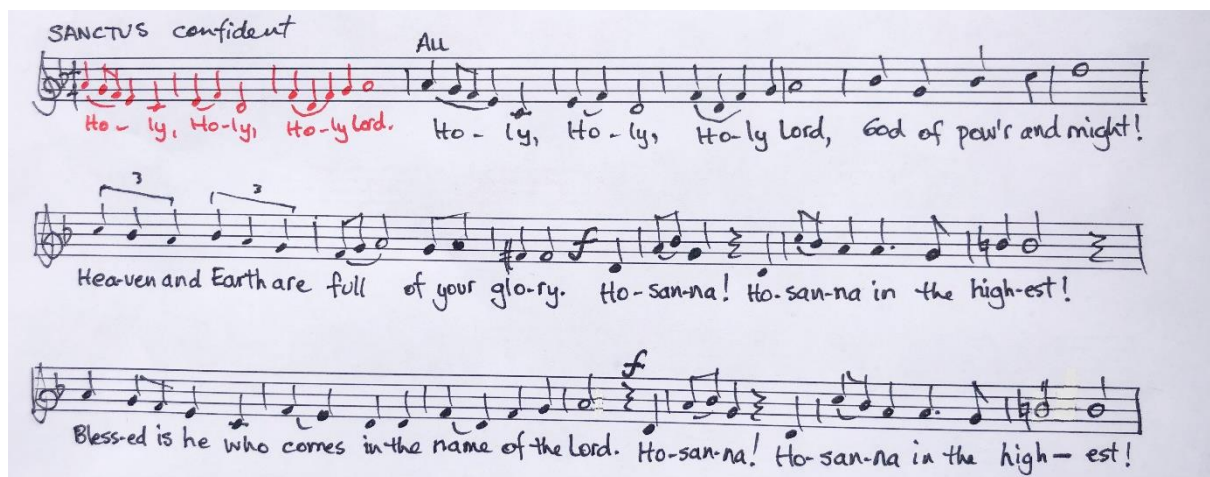 SANCTUS confident
All
Ho - ly, Ho-ly, Ho-ly Lord. Ho - ly, Ho - ly, Ho-ly Lord, God of pow'r and might!
3 3
f
Hea-ven and Earth are full of your glo-ry. Ho-san-na! Ho-san-na in the high-est!
f
Bless-ed is he who comes in the name of the Lord. Ho-san-na! Ho-san-na in the high-est!